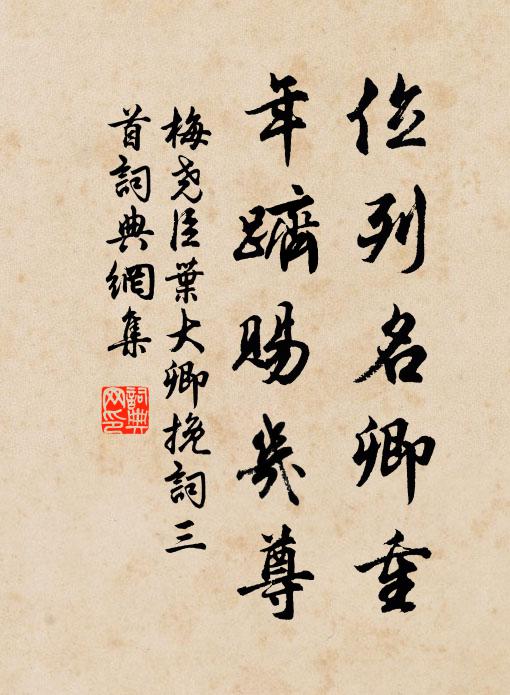 位列名卿重
年躋賜几尊
梅堯臣葉大卿挽詞三
首詞典網集
詞典
网印